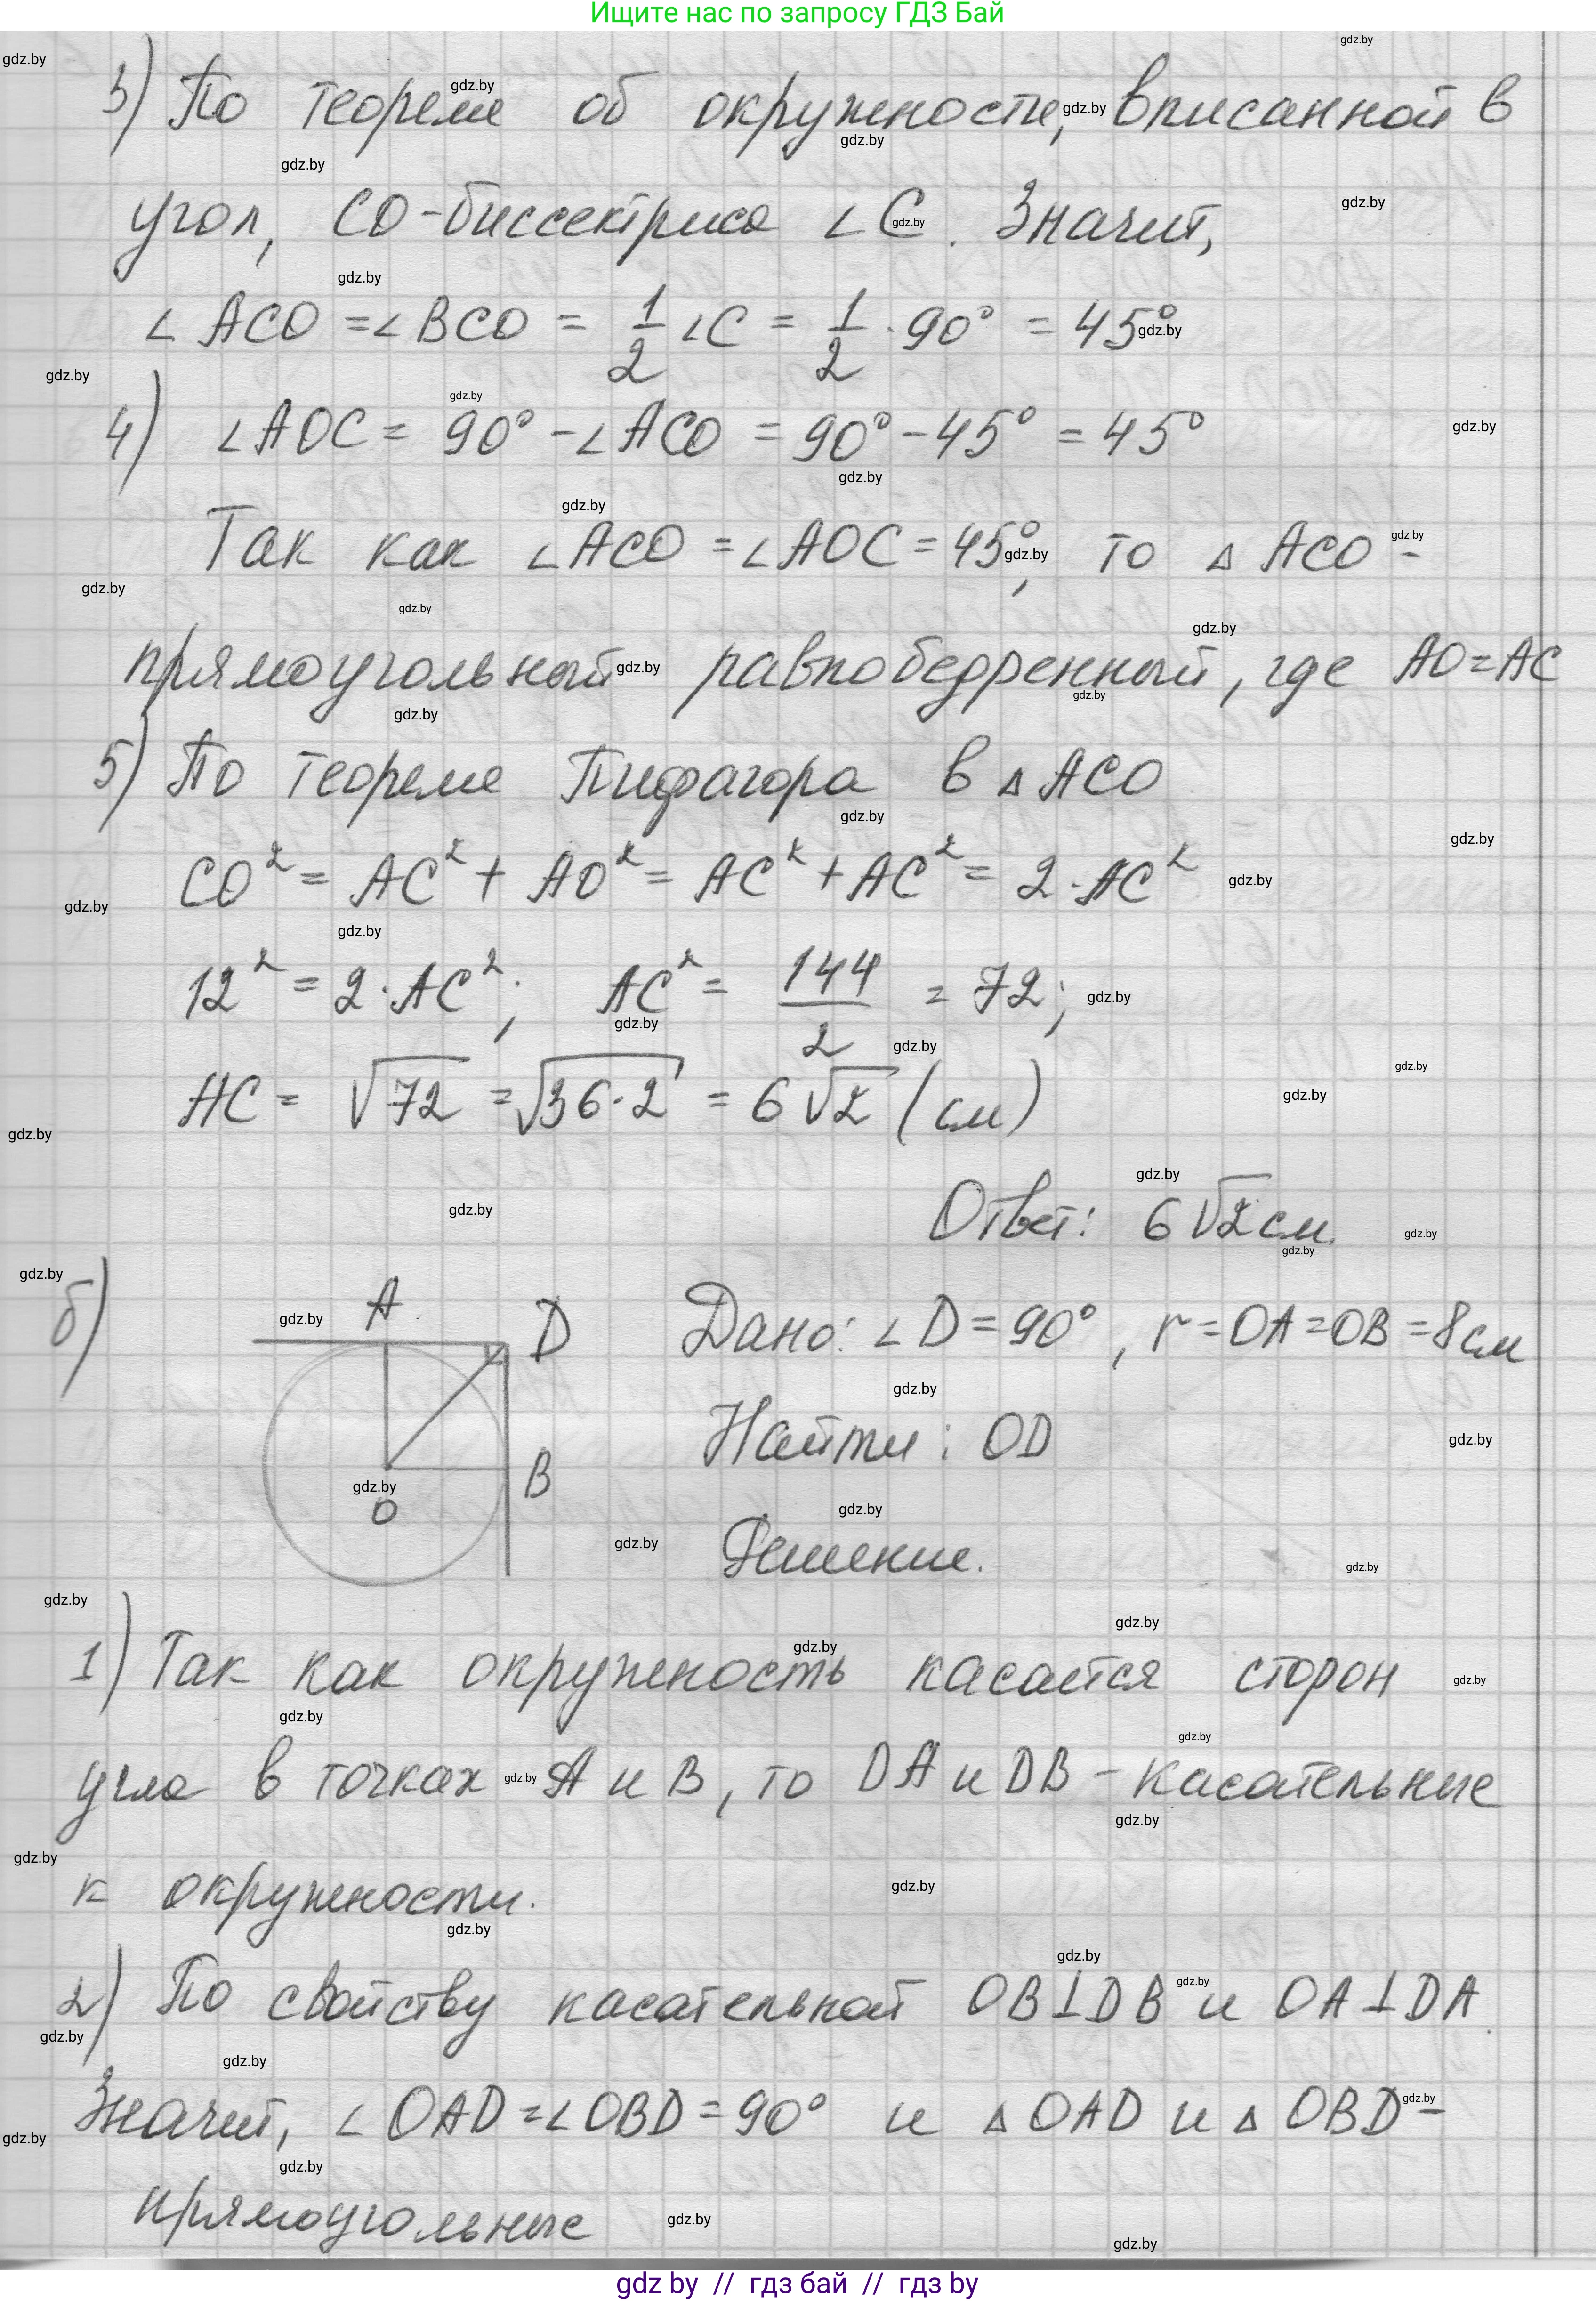 Ищите нас по запросу ГДЗ Бай
3) По теореме об окружности, вписанной в
угол, CO-биссектриса ∠C. Значит,
∠ACO = ∠BCO = 1/2 ∠C = 1/2 · 90° = 45°
4) ∠AOC = 90° - ∠ACO = 90° - 45° = 45°
Так как ∠ACO = ∠AOC = 45°, то △ACO -
прямоугольный равнобедренный, где AO=AC
5) По теореме Пифагора в △ACO
CO² = AC² + AO² = AC² + AC² = 2·AC²
12² = 2·AC²; AC² = 144/2 = 72;
AC = √72 = √36·2 = 6√2 (см)
Ответ: 6√2 см.
б)
A
D
Дано: ∠D = 90°, r = OA = OB = 8см
Найти: OD
B
O
Решение.
1) Так как окружность касается сторон
угла в точках A и B, то DA и DB - касательные
к окружности.
2) По свойству касательной OB⊥DB и OA⊥DA.
Значит, ∠OAD = ∠OBD = 90° и △OAD и △OBD -
прямоугольные
gdz by // гдз бай // гдз by